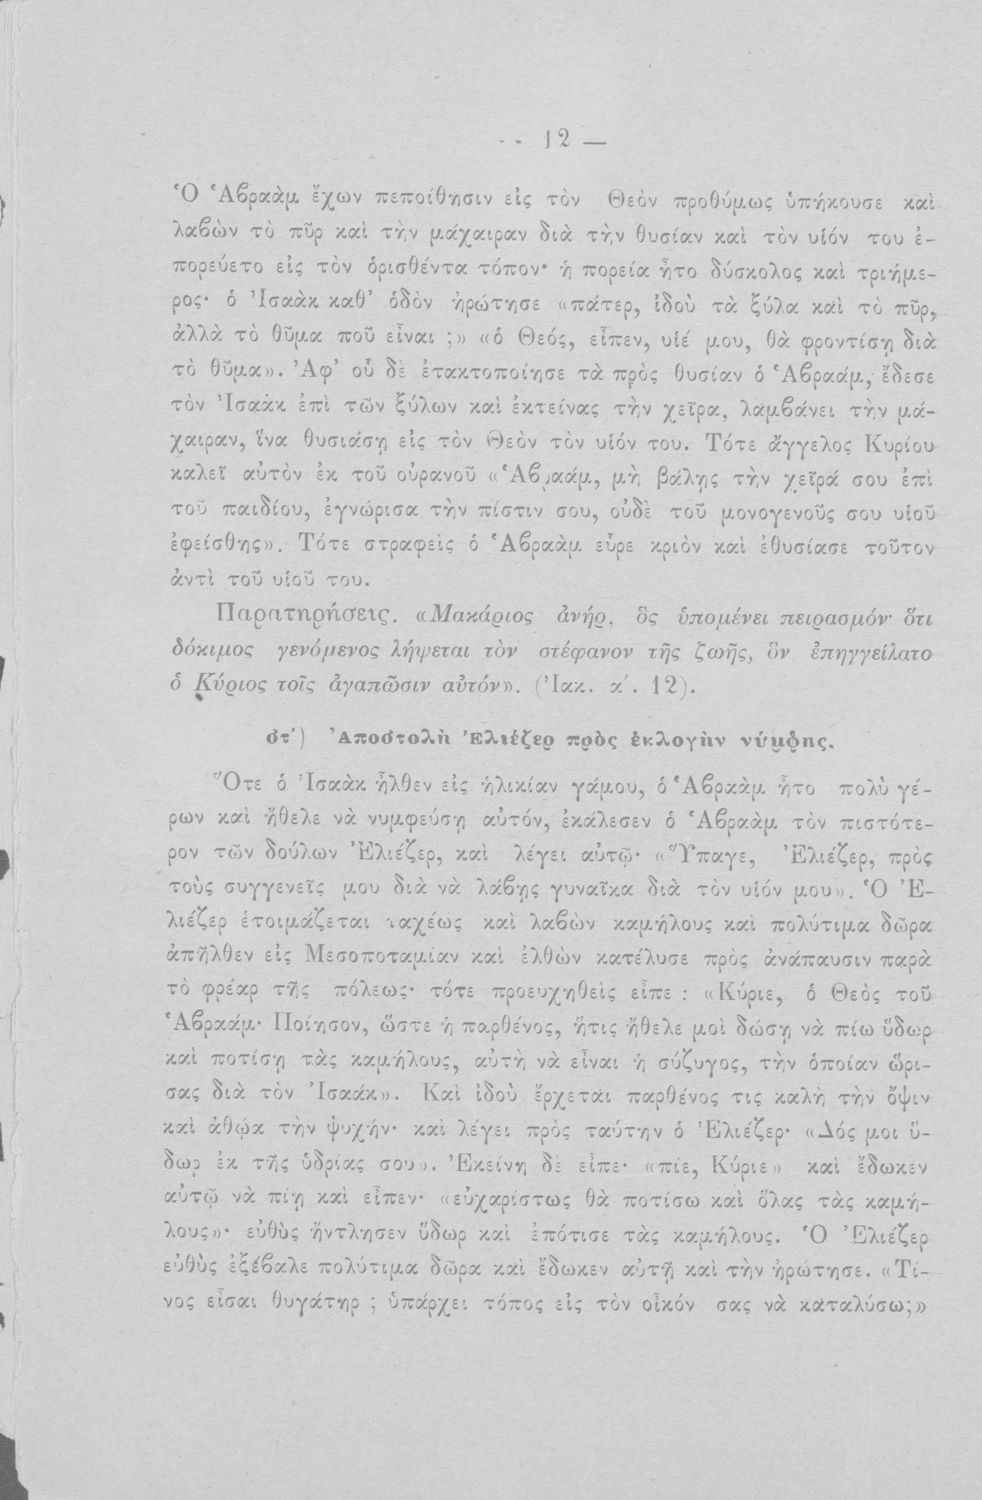 -- 12 —
Ὁ Ἁβραὰμ ἔχων πεποίθησιν εἰς τὸν Θεὸν προθύμως ὑπήκουσε καὶ
λαβὼν τὸ πῦρ καὶ τὴν μάχαιραν διὰ τὴν θυσίαν καὶ τὸν υἱόν του ἐ-
πορεύετο εἰς τὸν ὁρισθέντα τόπον· ἡ πορεία ἦτο δύσκολος καὶ τριήμε-
ρος· ὁ Ἰσαὰκ καθ’ ὁδὸν ἠρώτησε «πάτερ, ἰδοὺ τὰ ξύλα καὶ τὸ πῦρ,
ἀλλὰ τὸ θῦμα ποῦ εἶναι ;» «ὁ Θεός, εἶπεν, υἱέ μου, θὰ φροντίσῃ διὰ
τὸ θῦμα». Ἀφ’ οὗ δὲ ἐτακτοποίησε τὰ πρὸς θυσίαν ὁ Ἁβραάμ, ἔδεσε
τὸν Ἰσαὰκ ἐπὶ τῶν ξύλων καὶ ἐκτείνας τὴν χεῖρα, λαμβάνει τὴν μά-
χαιραν, ἵνα θυσιάσῃ εἰς τὸν Θεὸν τὸν υἱόν του. Τότε ἄγγελος Κυρίου
καλεῖ αὐτὸν ἐκ τοῦ οὐρανοῦ «Ἁβραάμ, μὴ βάλῃς τὴν χεῖρά σου ἐπὶ
τοῦ παιδίου, ἐγνώρισα τὴν πίστιν σου, οὐδὲ τοῦ μονογενοῦς σου υἱοῦ
ἐφείσθης». Τότε στραφεὶς ὁ Ἁβραὰμ εὗρε κριὸν καὶ ἐθυσίασε τοῦτον
ἀντὶ τοῦ υἱοῦ του.
Παρατηρήσεις. «Μακάριος ἀνήρ, ὃς ὑπομένει πειρασμόν· ὅτι
δόκιμος γενόμενος λήψεται τὸν στέφανον τῆς ζωῆς, ὃν ἐπηγγείλατο
ὁ Κύριος τοῖς ἀγαπῶσιν αὐτόν». (Ἰακ. α΄. 12).
στ΄) Ἀποστολὴ Ἐλιέζερ πρὸς ἐκλογὴν νύμφης.
Ὅτε ὁ Ἰσαὰκ ἦλθεν εἰς ἡλικίαν γάμου, ὁ Ἁβραὰμ ἦτο πολὺ γέ-
ρων καὶ ἤθελε νὰ νυμφεύσῃ αὐτόν, ἐκάλεσεν ὁ Ἁβραὰμ τὸν πιστότε-
ρον τῶν δούλων Ἐλιέζερ, καὶ λέγει αὐτῷ· «Ὕπαγε, Ἐλιέζερ, πρὸς
τοὺς συγγενεῖς μου διὰ νὰ λάβῃς γυναῖκα διὰ τὸν υἱόν μου». Ὁ Ἐ-
λιέζερ ἑτοιμάζεται ταχέως καὶ λαβὼν καμήλους καὶ πολύτιμα δῶρα
ἀπῆλθεν εἰς Μεσοποταμίαν καὶ ἐλθὼν κατέλυσε πρὸς ἀνάπαυσιν παρὰ
τὸ φρέαρ τῆς πόλεως· τότε προευχηθεὶς εἶπε : «Κύριε, ὁ Θεὸς τοῦ
Ἁβραάμ· Ποίησον, ὥστε ἡ παρθένος, ἥτις ἤθελε μοὶ δώσῃ νὰ πίω ὕδωρ
καὶ ποτίσῃ τὰς καμήλους, αὐτὴ νὰ εἶναι ἡ σύζυγος, τὴν ὁποίαν ὥρι-
σας διὰ τὸν Ἰσαάκ». Καὶ ἰδοὺ ἔρχεται παρθένος τις καλὴ τὴν ὄψιν
καὶ ἀθῴα τὴν ψυχήν· καὶ λέγει πρὸς ταύτην ὁ Ἐλιέζερ· «Δός μοι ὕ-
δωρ ἐκ τῆς ὑδρίας σου». Ἐκείνη δὲ εἶπε· «πίε, Κύριε» καὶ ἔδωκεν
αὐτῷ νὰ πίῃ καὶ εἶπεν· «εὐχαρίστως θὰ ποτίσω καὶ ὅλας τὰς καμή-
λους»· εὐθὺς ἤντλησεν ὕδωρ καὶ ἐπότισε τὰς καμήλους. Ὁ Ἐλιέζερ
εὐθὺς ἐξέβαλε πολύτιμα δῶρα καὶ ἔδωκεν αὐτῇ καὶ τὴν ἠρώτησε. «Τί-
νος εἶσαι θυγάτηρ ; ὑπάρχει τόπος εἰς τὸν οἶκόν σας νὰ καταλύσω;»